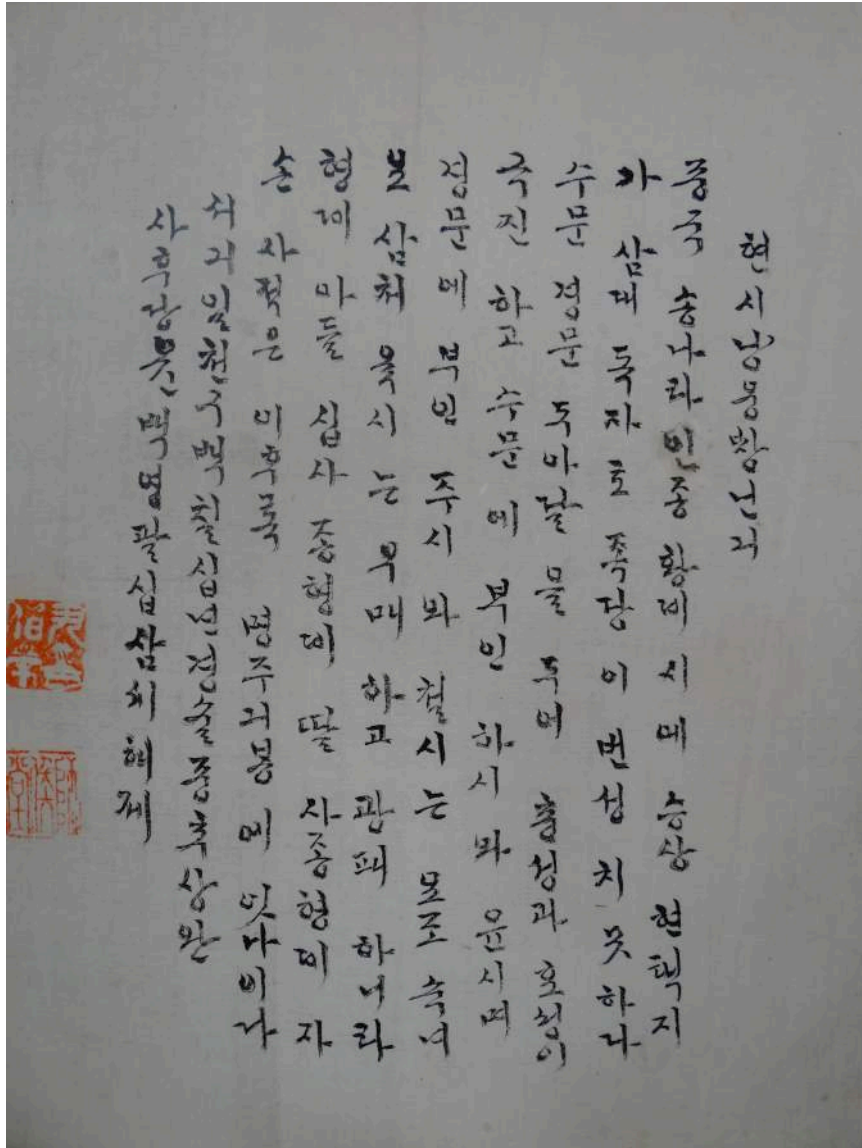 현시냥웅쌍닌긔
즁국 송나라 인종 황뎨 시에 승상 현택지
가 삼대 독자로 족당이 번성치 못하나
수문 경문 도아달 물 두어 충성과 효성이
극진 하고 수문에 부인 하시와 윤시며
경문에 부인 주시와 쳘시는 요조 숙녀
로 삼취 육시는 우매 하고 광패 하니라
형데 아들 십사 종형데 딸 사종형데 자
손 사적은 이후록 명주긔봉에 잇나이다
서긔 일천구백칠십년경술중추상완
사후당 백영 팔십삼세 혜제